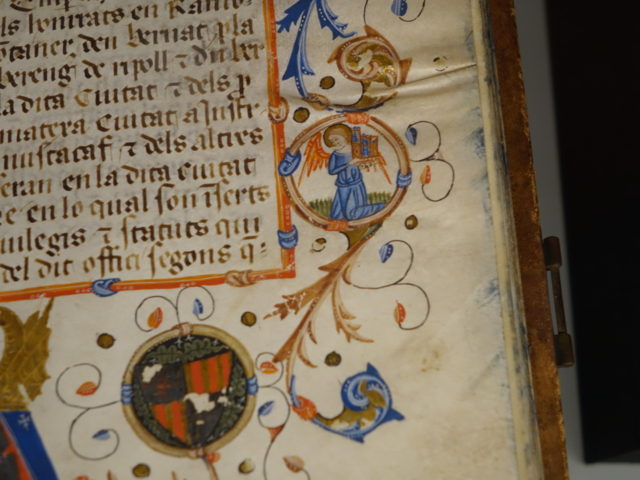 ls honrats en Ramo
ntaner, den bernat pla
bereng de ripoll ⁊ den ber
la dita Ciutat ⁊ dels p
matexa Ciutat aJustr
mustacaf, ⁊ dels altres
seran en la dita ciutat
re en lo qual son iserts
uilegis ⁊ statuts qui
del dit offici segons q̄